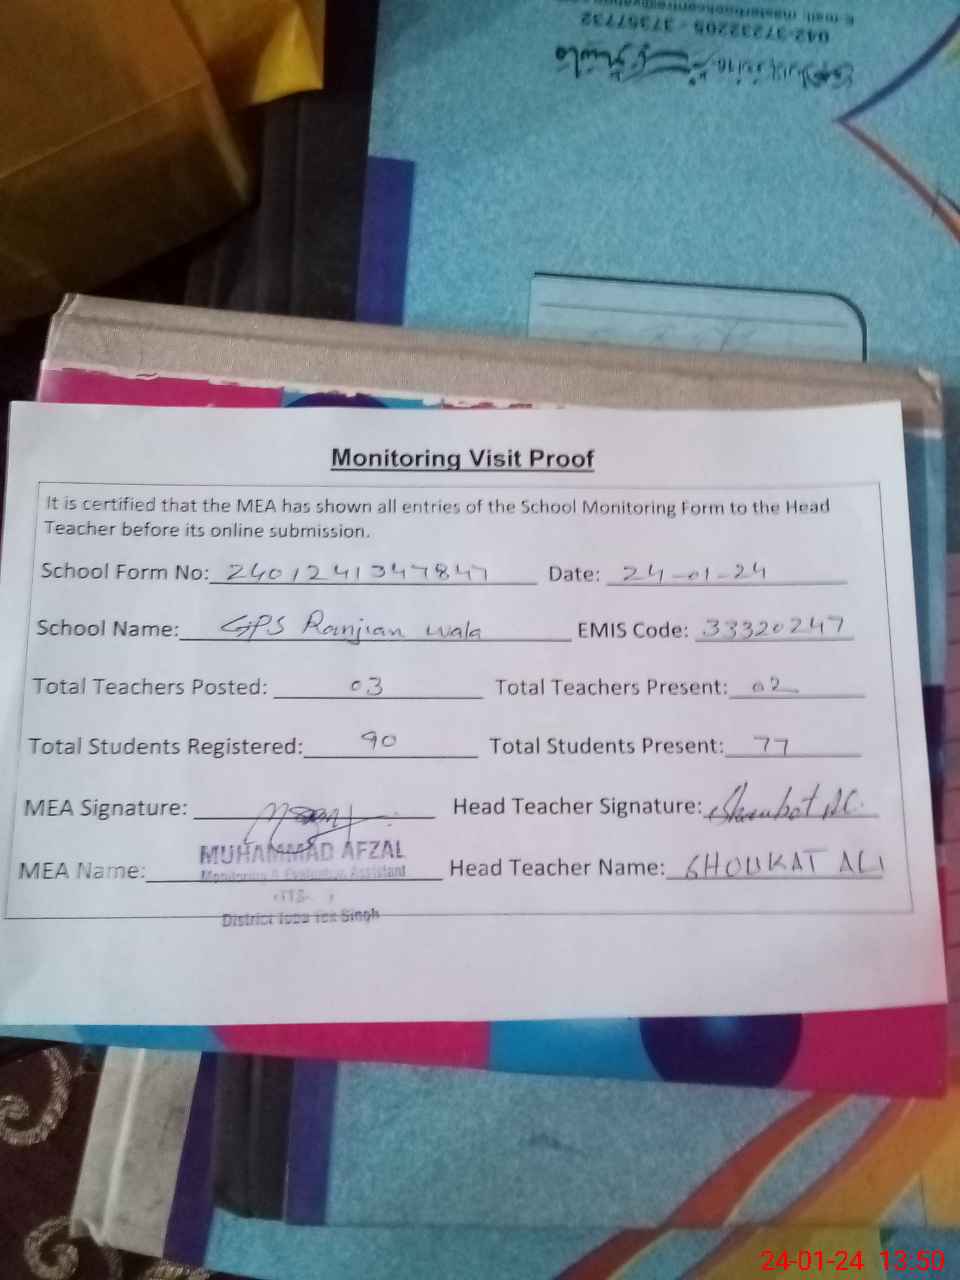 E-mail:
042-37232205 - 37357732
Monitoring Visit Proof
It is certified that the MEA has shown all entries of the School Monitoring Form to the Head
Teacher before its online submission.
School Form No: 2401241347847 Date: 24-01-24
School Name: GPS Ranjian wala EMIS Code: 33320247
Total Teachers Posted: 03 Total Teachers Present: 02
Total Students Registered: 90 Total Students Present: 77
MEA Signature: Head Teacher Signature:
MUHAMMAD AFZAL
MEA Name: Monitoring & Evaluation Assistant Head Teacher Name: SHOUKAT ALI
District Toba Tek Singh
24-01-24 13:50